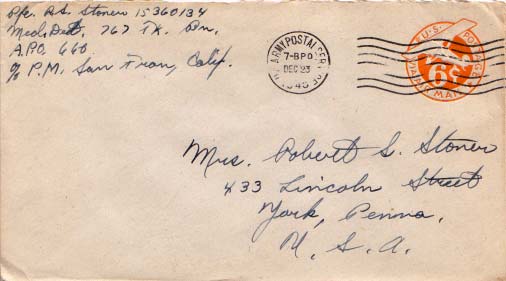 Pfc. R.S. Stoner 15360134
Med. Det, 767 TK. Bn.
A.P.O. 660
c/o P.M. San Fran, Calif.
ARMY POSTAL SERVICE
7-8PM
DEC 23
1945
U.S. POSTAGE
6¢
VIA AIR MAIL
Mrs. Robert S. Stoner
433 Lincoln Street
York, Penna.
U. S. A.